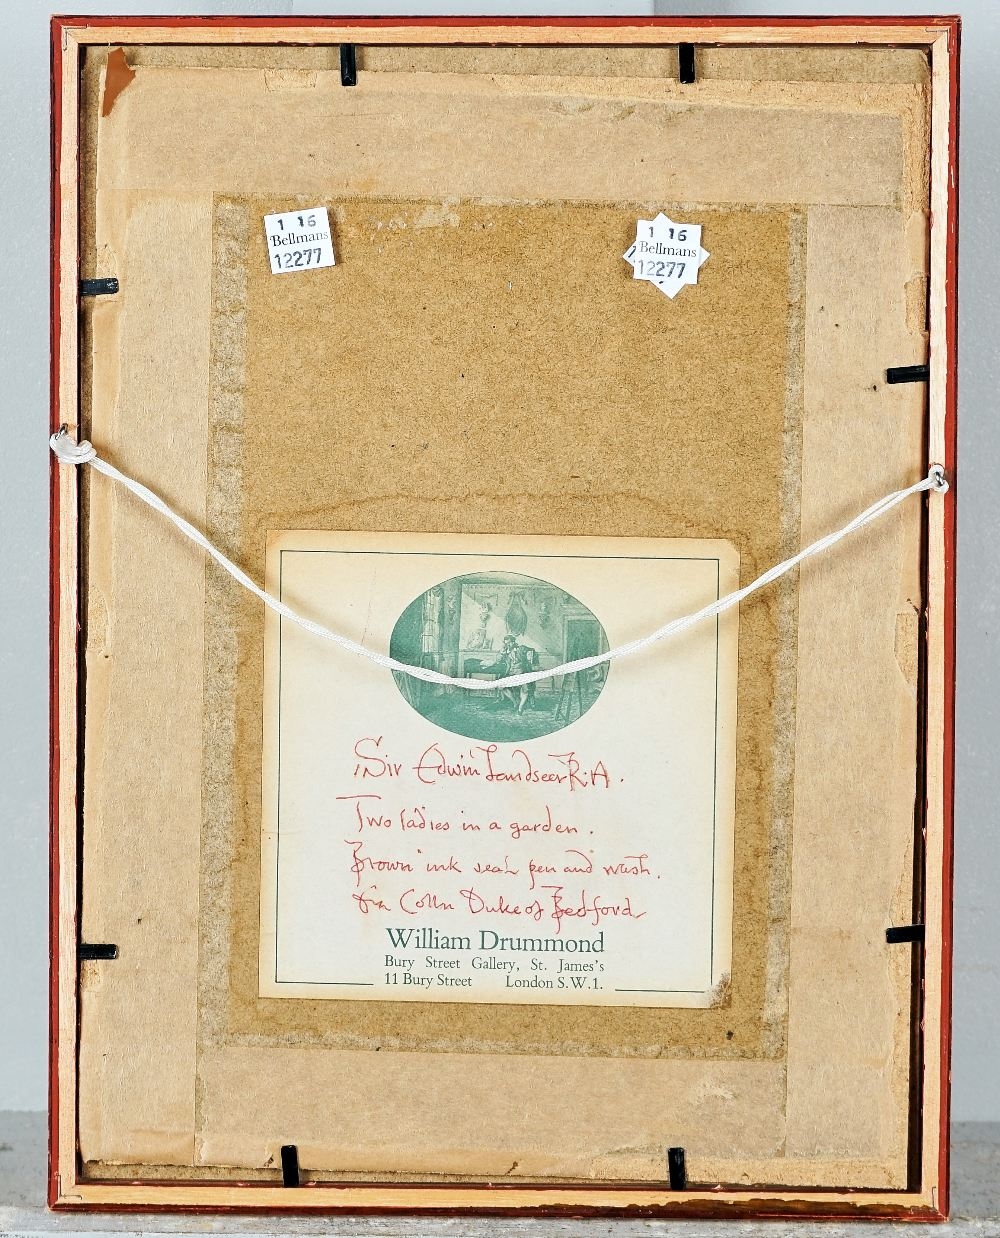 1 16
Bellmans
12277
1 16
Bellmans
12277
Sir Edwin Landseer R.A.
Two ladies in a garden.
Brown ink seal pen and wash.
Colln Duke of Bedford
William Drummond
Bury Street Gallery, St. James's
11 Bury Street London S.W.1.